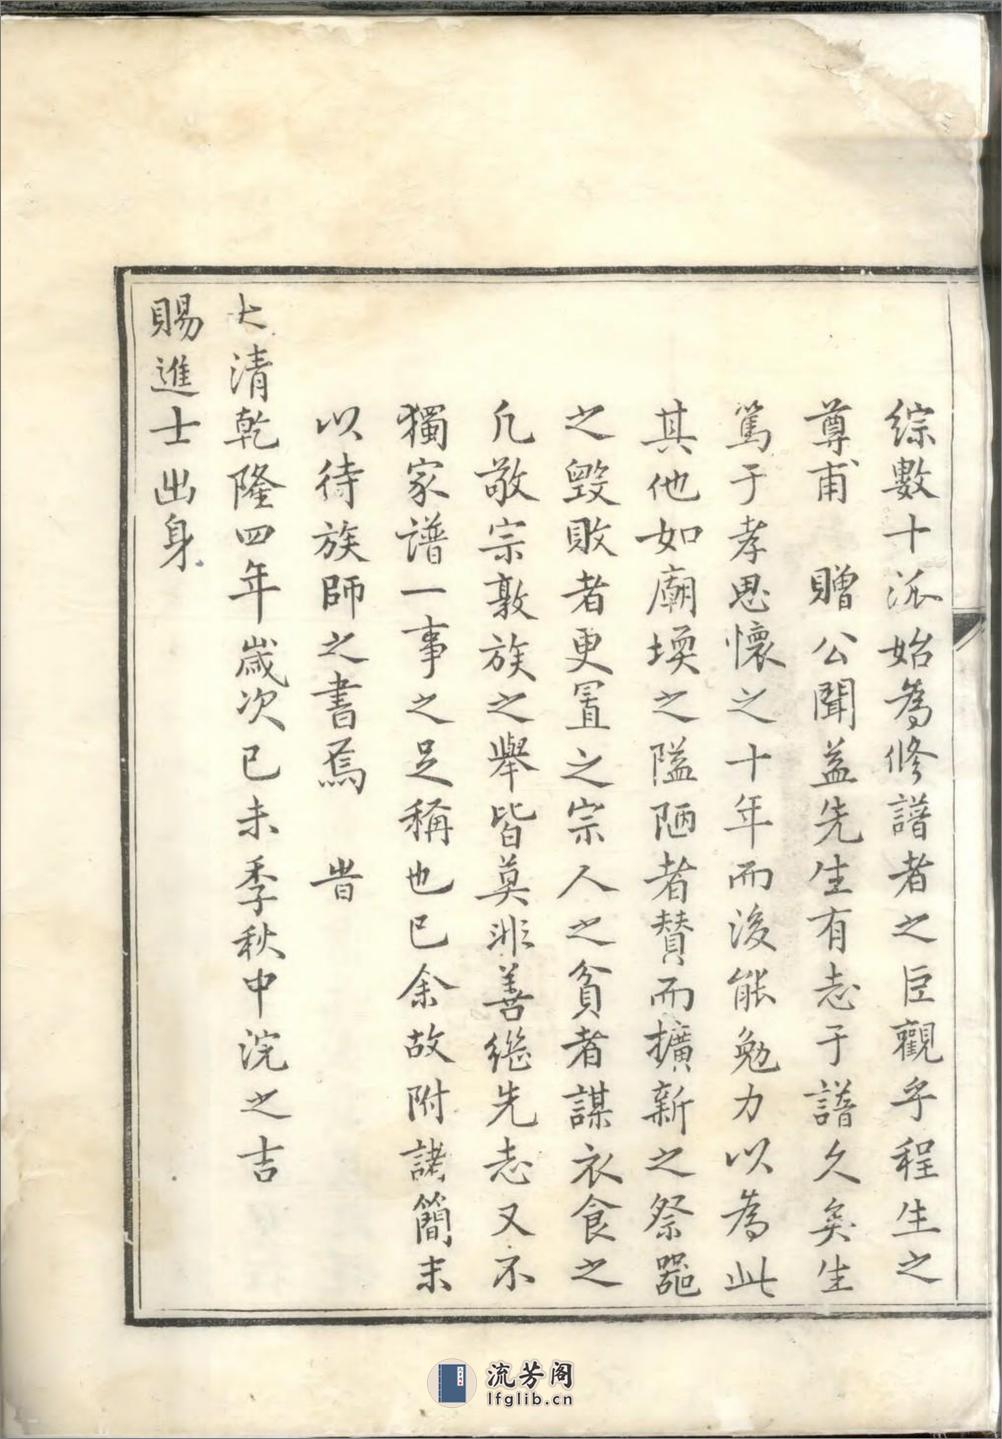 綜數十派始為修譜者之巨觀乎程生之
尊甫　贈公聞益先生有志于譜久矣生
篤于孝思懷之十年而後能勉力以為此
其他如廟堧之隘陋者賛而擴新之祭器
之毀敗者更置之宗人之貧者謀衣食之
凡敬宗敦族之舉皆莫非善繼先志又不
獨家譜一事之足稱也已余故附諸簡末
以待族師之書焉　旹
大清乾隆四年歲次己未季秋中浣之吉
賜進士出身
流芳阁
lfglib.cn